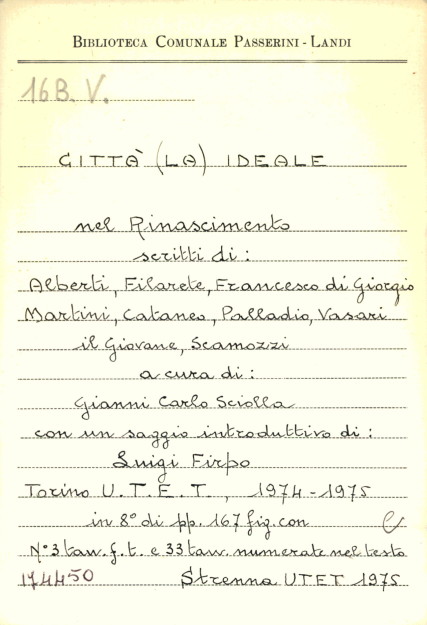 BIBLIOTECA COMUNALE PASSERINI - LANDI
16B. V.
CITTÀ (LA) IDEALE
nel Rinascimento
scritti di:
Alberti, Filarete, Francesco di Giorgio
Martini, Cataneo, Palladio, Vasari
il Giovane, Scamozzi
a cura di:
Gianni Carlo Sciolla
con un saggio introduttivo di:
Luigi Firpo
Torino U. T. E. T., 1974-1975
in 8° di pp. 167 fig. con e
N° 3 tav. f. t. e 33 tav. numerate nel testo
174450 Strenna UTET 1975